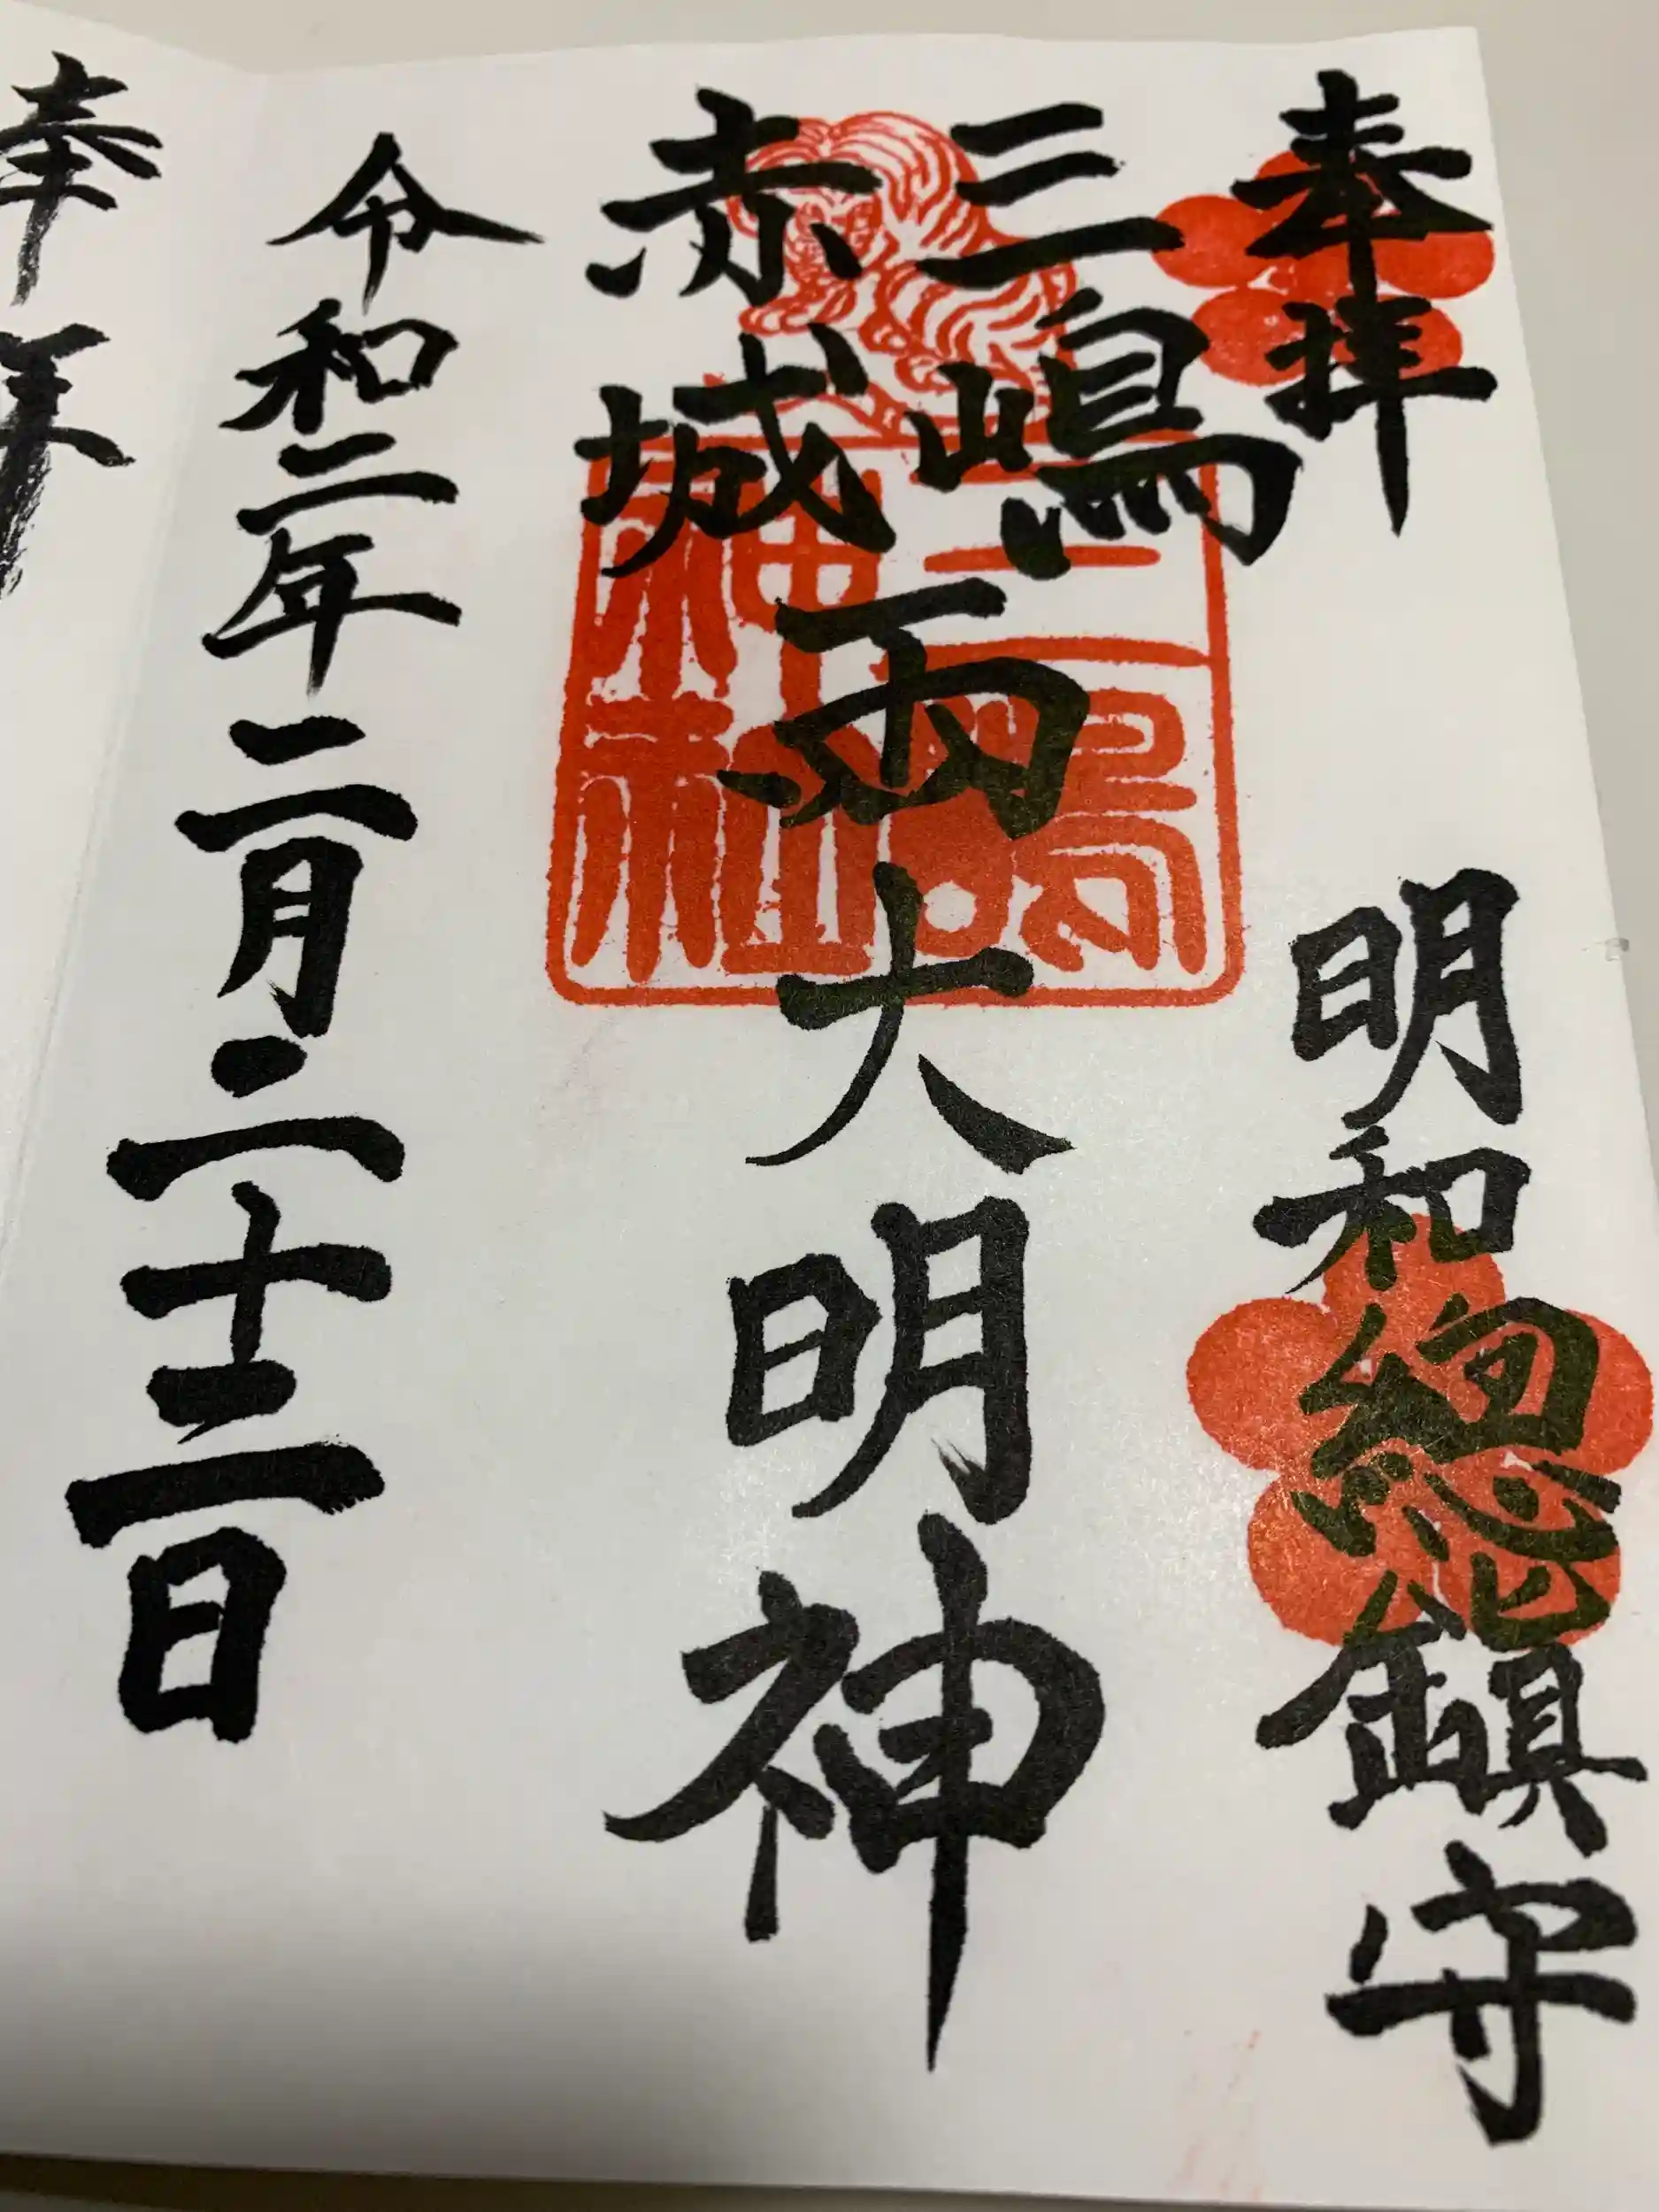 奉拝
明和總鎮守
三嶋
赤城
両大明神
三嶋
神社
令和二年二月二十二日
奉拝